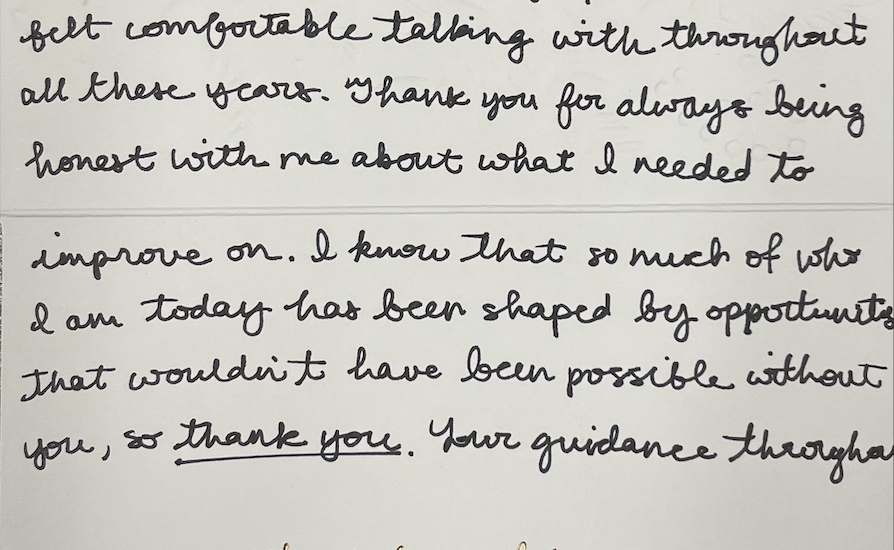 felt comfortable talking with throughout
all these years. Thank you for always being
honest with me about what I needed to
improve on. I know that so much of who
I am today has been shaped by
that wouldn't have been possible without
you, so thank you. Your guidance